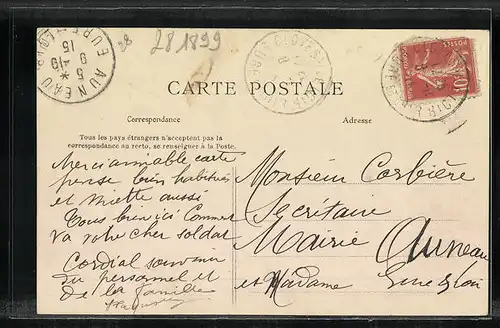 28
28 1899
AUNEAU
EURE-ET-LOIR
5 * 9
15
CARTE POSTALE
Correspondance
Adresse
Tous les pays étrangers n'acceptent pas la
correspondance au recto, se renseigner à la Poste.
Merci aimable carte
pense bien
et Miette aussi
Tous bien ici Comment
va votre cher soldat
Cordial souvenir
du personnel et
de la famille
Monsieur Corbière
Secrétaire
Mairie
Auneau
et Madame
POSTES
10